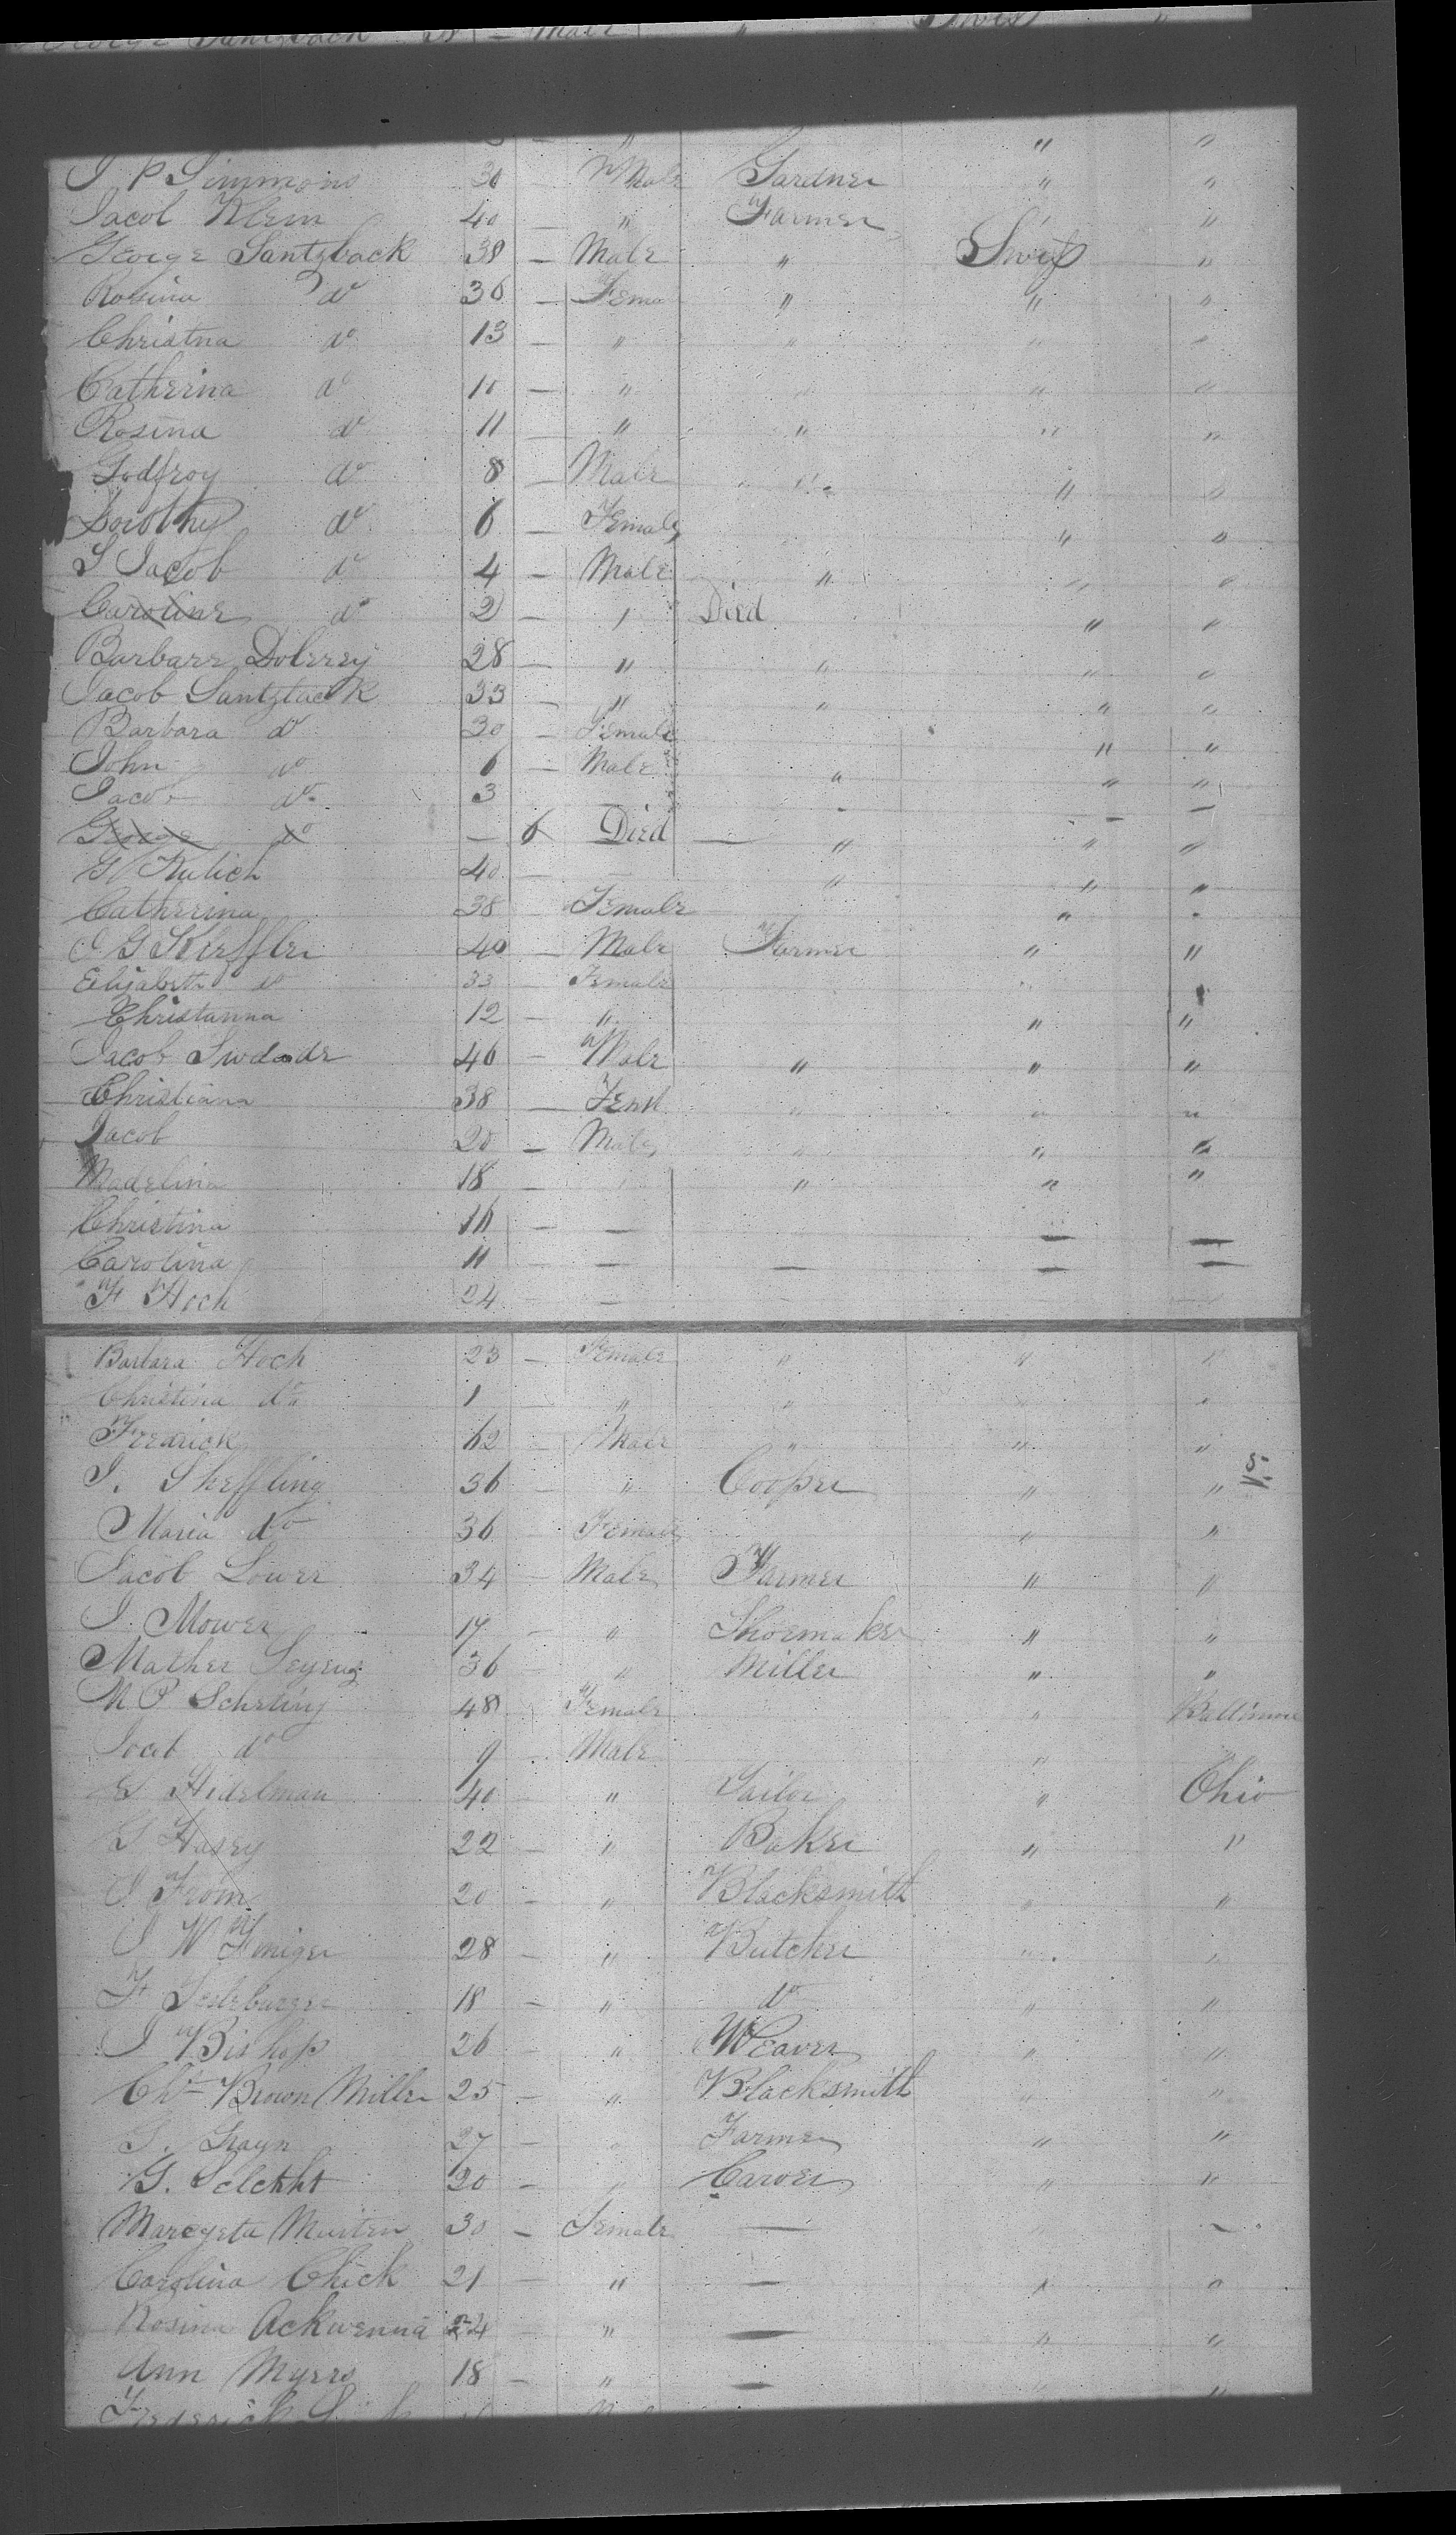 George Santzback 38 — Male " Swiss "
" " "
J P Simmons 30 — Male Gardner " "
Jacob Klein 40 — " Farmer " "
George Santzback 38 — Male " Swiss "
Rosina do 36 — Fema " " "
Christna do 13 — " " " "
Catherina do 10 — " " " "
Rosina do 11 — " " " "
Godfroy do 8 — Male " " "
Dorothy do 6 — Female " "
S Jacob do 4 — Male " " "
Caroline do 2 — " Died " "
Barbare Dolerey 28 — " " " "
Jacob Santzback 33 — " " " "
Barbara do 30 — Female " "
John do 6 — Male " " "
Jacob do 3 — — —
George do — 6 Died — " " "
G Kulich 40 — " " "
Catherina 38 Female " "
J G Kieffler 40 — Male Farmer " "
Elizabeth do 33 Female "
Christanna 12 — " " "
Jacob 46 — Male " " "
Christiana 38 — Feml " " "
Jacob 20 — Male " " "
Madelina 18 — " " " "
Christina 16 — — — —
Carolina 11 — — — — —
F Hoch 24 —
Barbara Hoch 23 — Female " " "
Christina do 1 — " " " "
Fredrick 62 — Male " " "
J. Sheffling 36 — " Cooper " "
Maria do 36 — Female " "
Jacob Lower 34 — Male Farmer " "
J. Mower 17 — " Shoemaker " "
Mather Seyeng 36 — " Miller " "
M P Schrling 48 Female " Baltimore
Jocob do 9 — Male "
E Hidelman 40 — " Tailor " Ohio
G Hasey 22 — " Baker " "
J From 20 — " Blacksmith " "
J W 28 — " Butcher " "
F 18 — " do " "
J Bishop 26 — " Weaver " "
Chs Brown Miller 25 — " Blacksmith " "
27 — " Farmer " "
G. Selckht 20 — " Carver " "
Marcyeta Muiten 30 — Female — " "
Carolina Chick 21 — " — " "
Rosina Ackwenna 24 " — " "
Ann Myers 18 — " — " "
Frederick